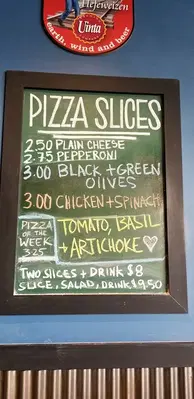 Hefeweizen
Uinta
earth, wind and beer
PIZZA SLICES
2.50 PLAIN CHEESE
2.75 PEPPERONI
3.00 BLACK + GREEN
OLIVES
3.00 CHICKEN + SPINACH
PIZZA
OF THE
WEEK
3.25
TOMATO, BASIL
+ ARTICHOKE
TWO SLICES + DRINK $8
SLICE, SALAD, DRINK $9.50